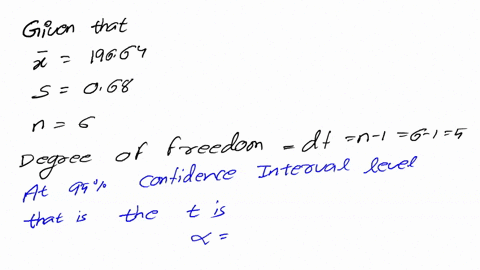 Given that
x̄ = 196.64
s = 0.68
n = 6
Degree of freedom = df = n-1 = 6-1 = 5
At 99% confidence Interval level
that is the t is
α =